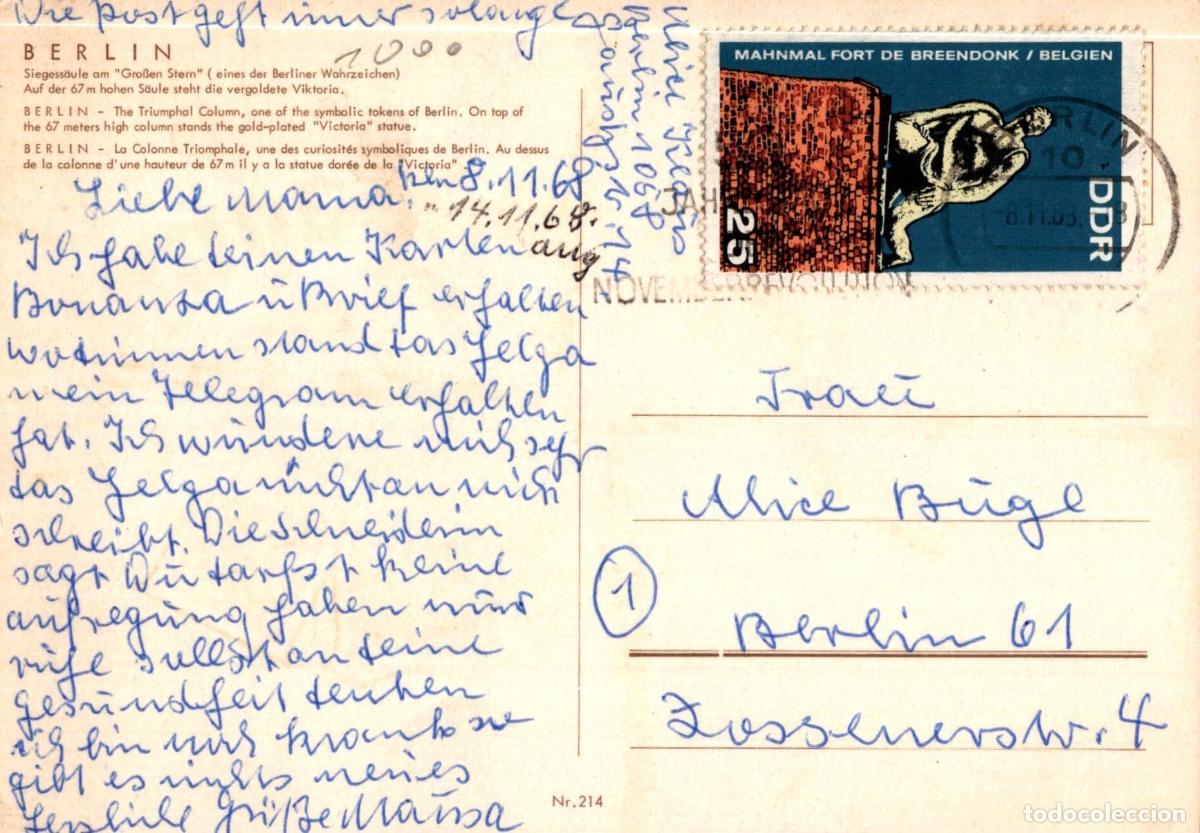 Die Post geht immer solange
BERLIN
1000
Siegessäule am "Großen Stern" ( eines der Berliner Wahrzeichen)
Auf der 67 m hohen Säule steht die vergoldete Viktoria.
BERLIN – The Triumphal Column, one of the symbolic tokens of Berlin. On top of
the 67 meters high column stands the gold-plated "Victoria" statue.
BERLIN – La Colonne Triomphale, une des curiosités symboliques de Berlin. Au dessus
de la colonne d'une hauteur de 67 m il y a la statue dorée de la "Victoria".
Liebe Mama. den 8.11.68
" 14.11.68.
ang
Ich habe deinen Karten
Bonanza u Brief erhalten
wo drinnen stand das Helga
mein Telegram erhalten
hat. Ich wundere mich sehr
das Helga nicht an mich
schreibt. Die Schneiderin
sagt Du darfst keine
aufregung haben nur
ruhe sollst an deine
Gesundheit denken
ich bin noch krank so
gibt es nichts neues
Herzliche Grüße Mausa
Berlin 1058
MAHNMAL FORT DE BREENDONK / BELGIEN
DDR
25
BERLIN
10
-8.11.68
JAH
NOVEMBERREVOLUTION
Frau
Alice Bügl
1
Berlin 61
Zossenerstr. 4
Nr. 214
todocoleccion